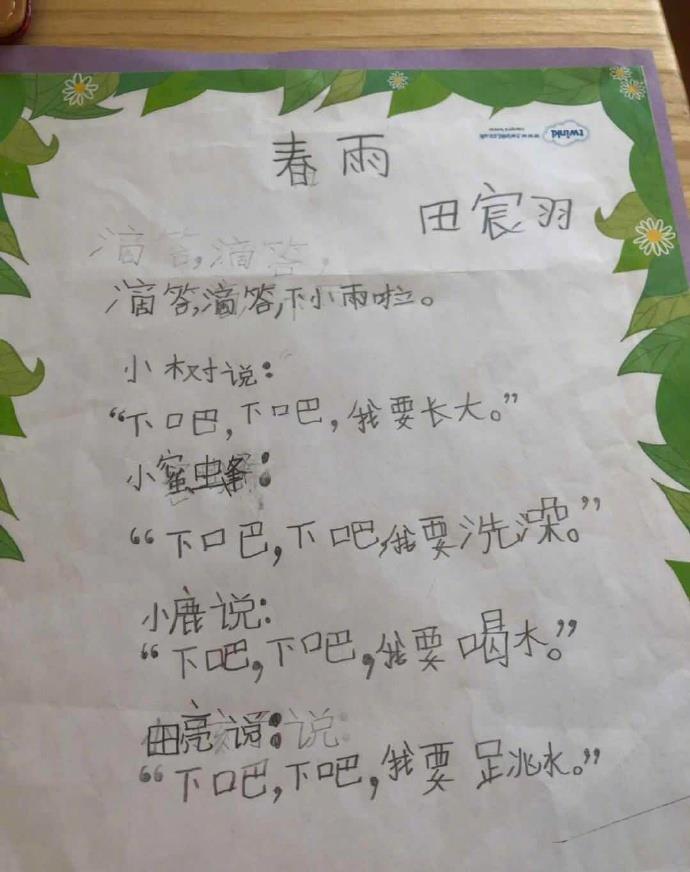 twinkl
www.twinkl.co.uk
春雨
田宸羽
滴答,滴答,
滴答,滴答,下小雨啦。
小树说:
“下吧,下吧,我要长大。”
小蜜蜂:
“下吧,下吧,我要洗澡。”
小鹿说:
“下吧,下吧,我要喝水。”
田亮说: 说:
“下吧,下吧,我要跳水。”